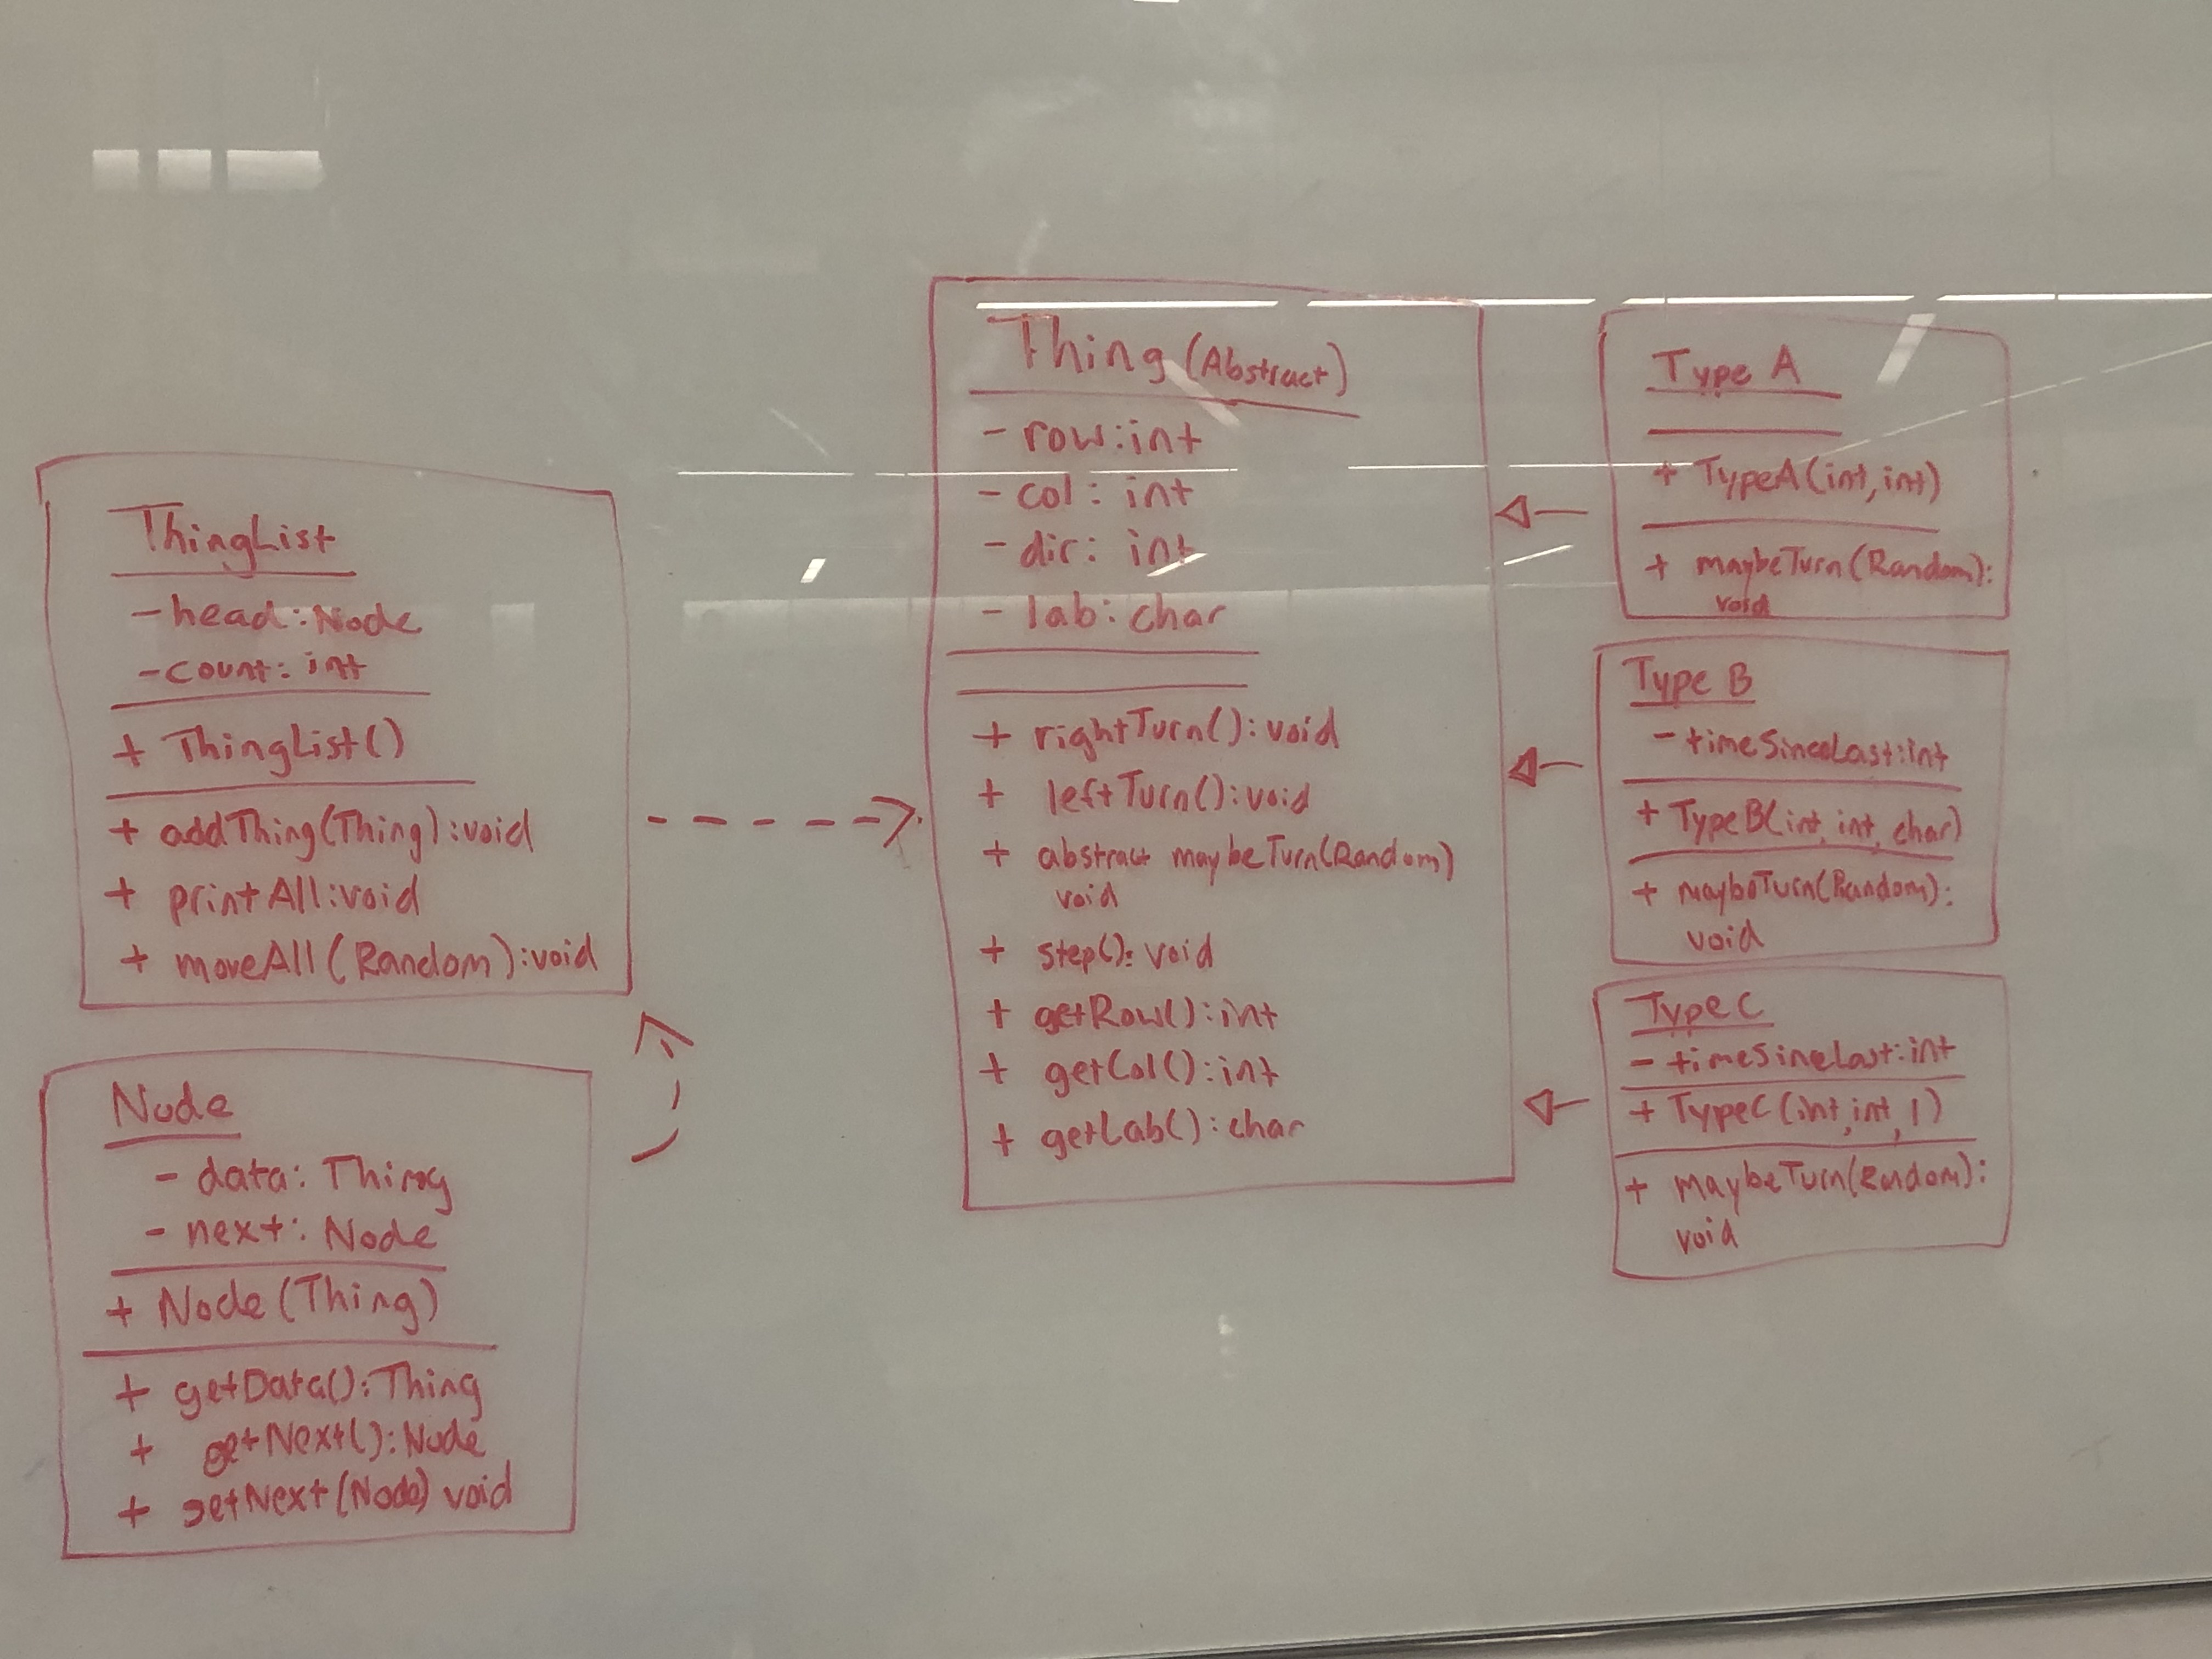 ThingList
- head: Node
- count: int
+ ThingList()
+ addThing(Thing): void
+ printAll: void
+ moveAll(Random): void
Node
- data: Thing
- next: Node
+ Node(Thing)
+ getData(): Thing
+ getNext(): Node
+ setNext(Node) void
Thing (Abstract)
- row: int
- col: int
- dir: int
- lab: char
+ rightTurn(): void
+ leftTurn(): void
+ abstract maybeTurn(Random)
void
+ step(): void
+ getRow(): int
+ getCol(): int
+ getLab(): char
Type A
+ TypeA(int, int)
+ maybeTurn(Random):
void
Type B
- timeSinceLast: int
+ TypeB(int, int, char)
+ maybeTurn(Random):
void
Type C
- timeSinceLast: int
+ TypeC(int, int, 1)
+ maybeTurn(Random):
void